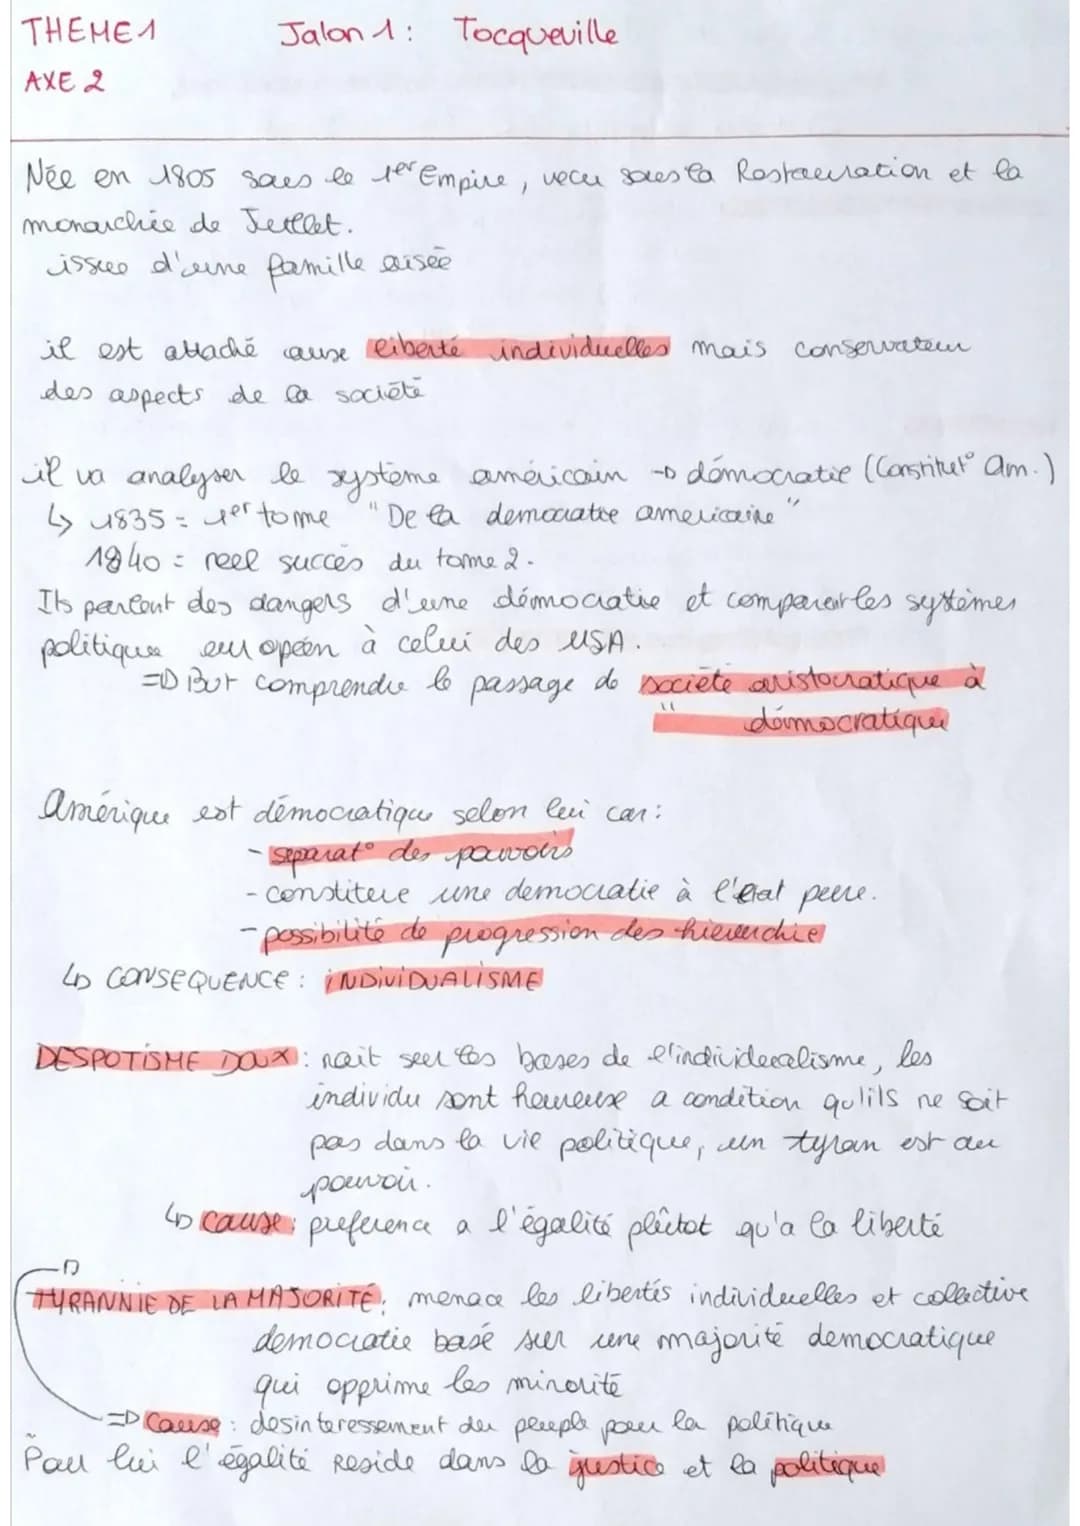 THEME 1 Jalon 1 : Tocqueville
AXE 2
Née en 1805 sous le 1er Empire, vecu sous la Restauration et la
monarchie de Juillet.
issue d'une famille aisée
il est attaché aux liberté individuelles mais conservateur
des aspects de la société
il va analyser le système américain → démocratie (Constitut° Am.)
↳ 1835 = 1er tome "De la democratie americaine"
1840 = reel succès du tome 2.
Ils parlent des dangers d'une démocratie et comparent les systèmes
politique européen à celui des USA.
⇒ But comprendre le passage de société aristocratique à
" démocratique
Amérique est démocratique selon lui car :
- separat° des pouvoirs
- constitue une democratie à l'état pure.
- possibilité de progression des hierarchie
↳ CONSEQUENCE : INDIVIDUALISME
DESPOTISME DOUX : nait sur les bases de l'individualisme, les
individu sont heureux a condition qu'ils ne soit
pas dans la vie politique, un tyran est au
pouvoir.
↳ Cause : preference a l'égalité plûtot qu'a la liberté
TYRANNIE DE LA MAJORITÉ : menace les libertés individuelles et collective
democratie basé sur une majorité democratique
qui opprime les minorité
⇒ Cause : desinteressement du peuple pour la politique
Pour lui l'égalité reside dans la justice et la politique